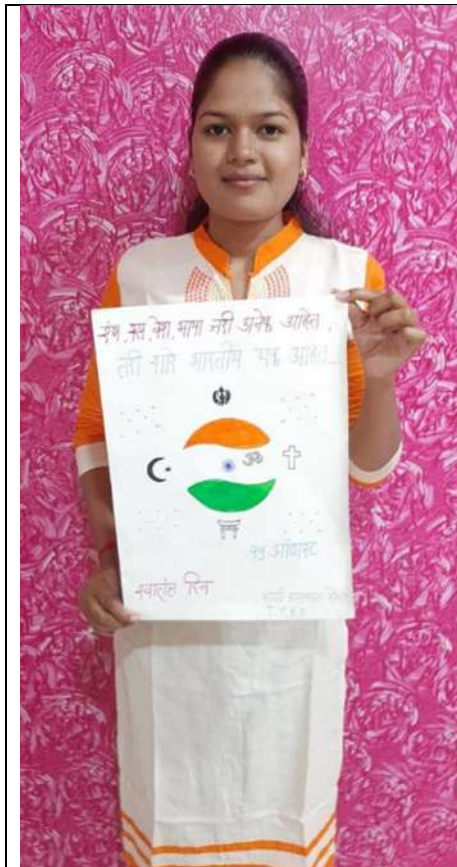 रंग, रूप, वेश, भाषा जरी अनेक आहेत.
तरी सारे भारतीय एक आहेत...
ॐ
१५ ऑगस्ट
दिन